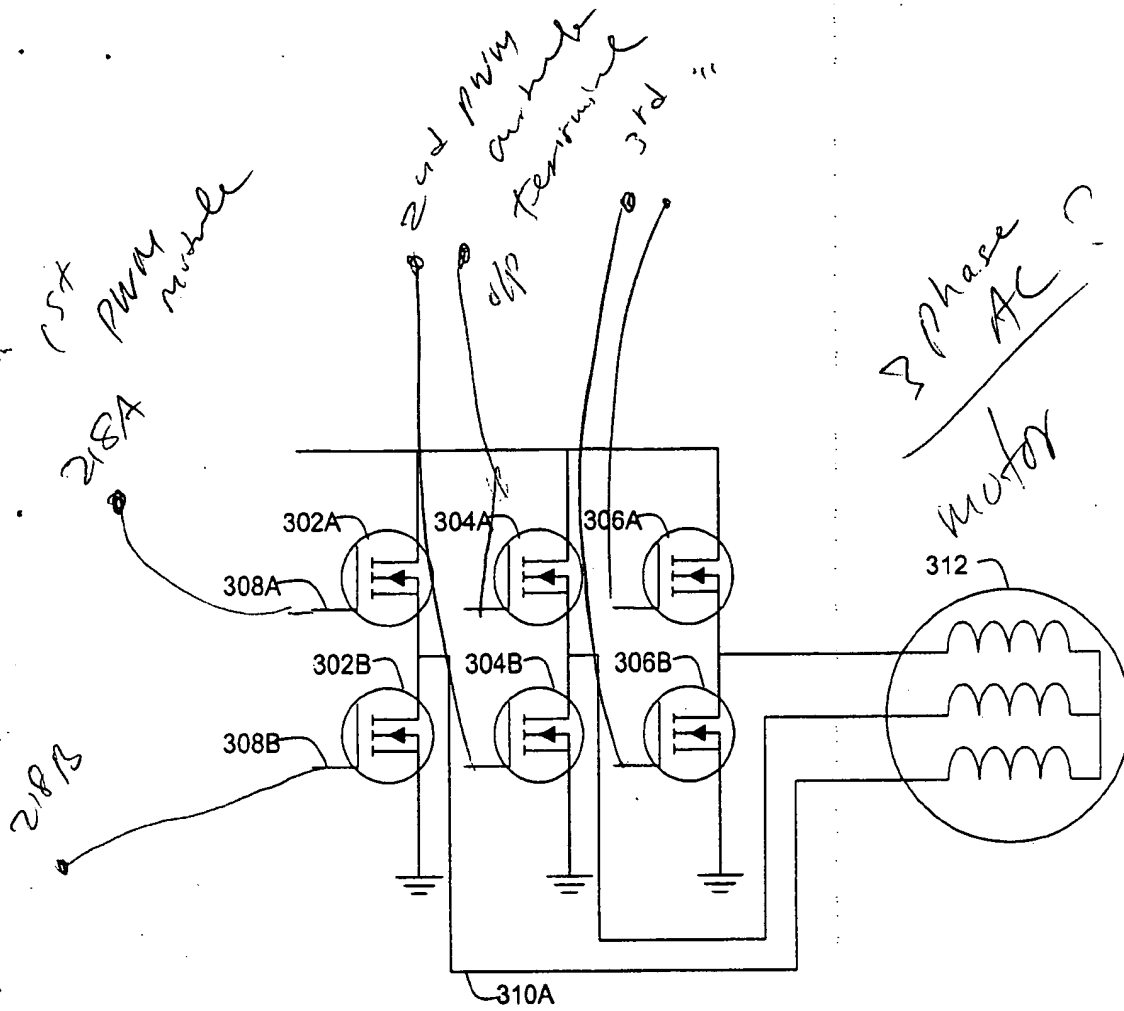 1st
PWM
module
218A
2nd PWM
module
terminal
o/p
3rd "
3 phase
AC ?
motor
302A
304A
306A
308A
312
302B
304B
306B
308B
218B
310A